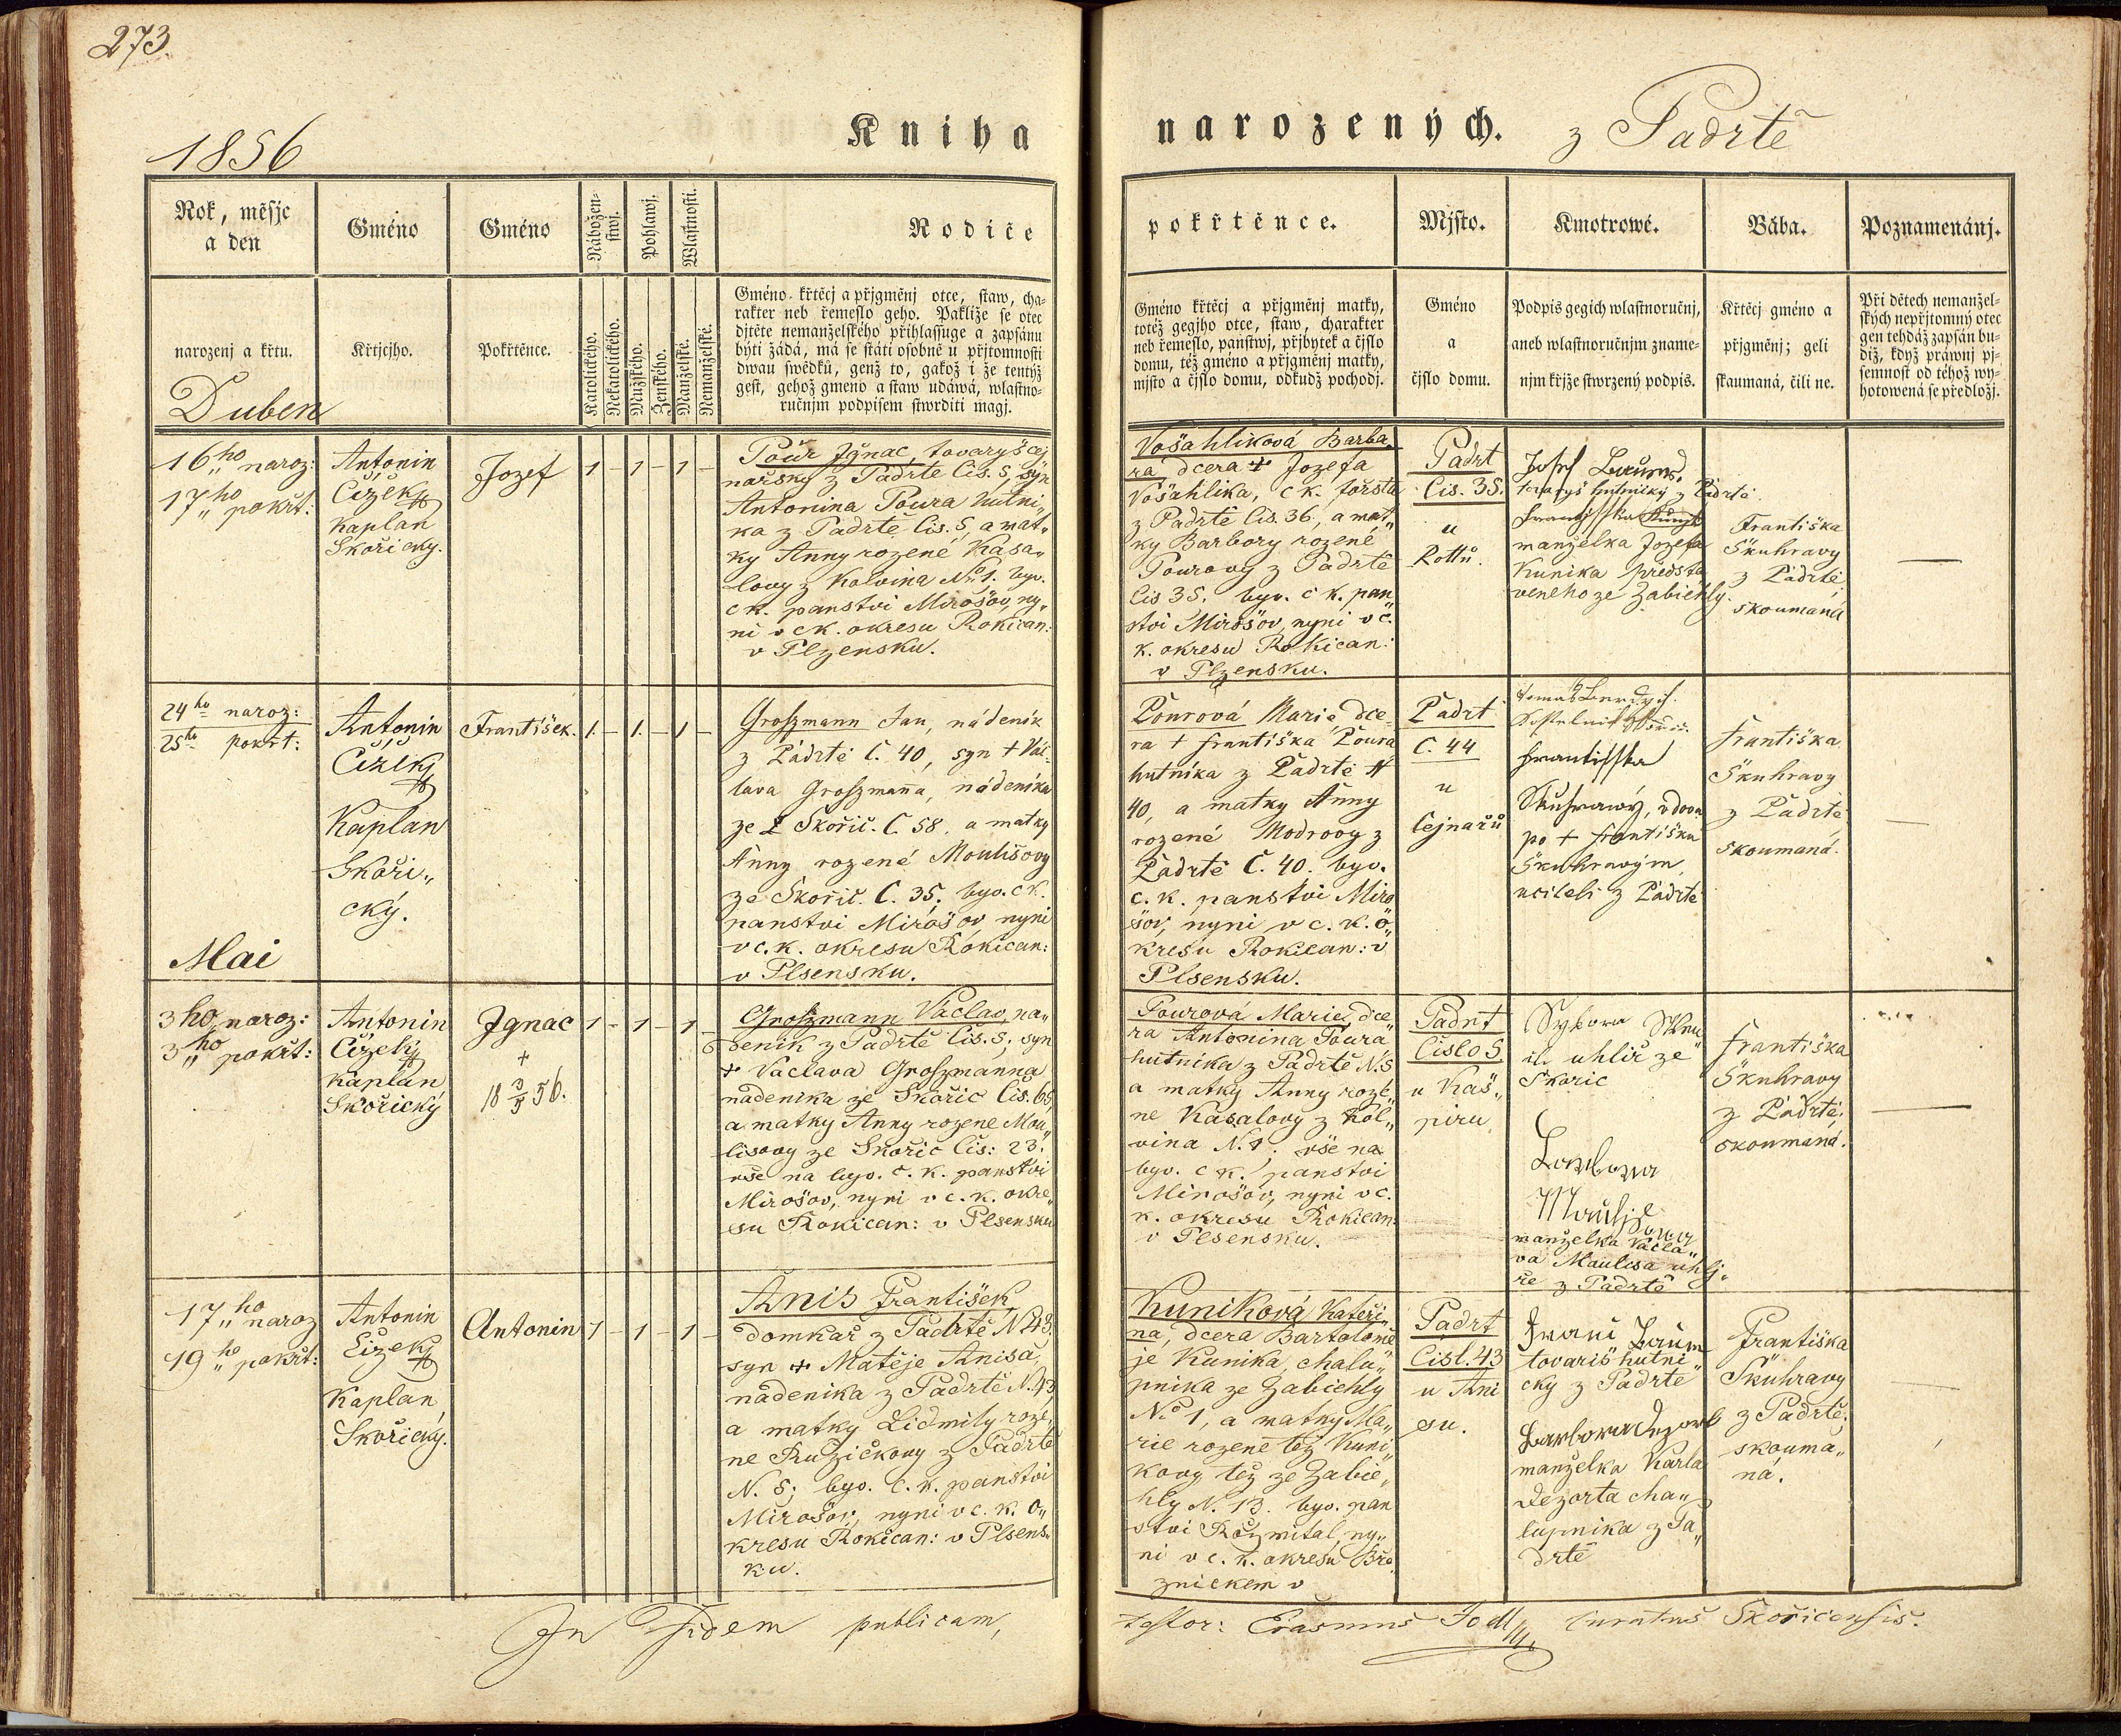 273.
1856
Kniha narozených. z Padrtě
Rok, měsjc
a den
Gméno
Gméno
Nábožen-
stwj.
Pohlawj.
Wlastnosti.
Rodiče pokřtěnce.
Mjsto.
Kmotrowé.
Bába.
Poznamenánj.
narozenj a křtu.
Křtjcjho.
Pokřtěnce.
Katolického.
Nekatolického.
Mužského.
Ženského.
Manželské.
Nemanželské.
Gméno křtěcj a přjgměnj otce, staw, cha-
rakter neb řemeslo geho. Pakliže se otec
djtěte nemanželského přihlassuge a zapsánu
býti žádá, má se státi osobně u přjtomnosti
dwau swědků, genž to, gakož i že tentýž
gest, gehož gmeno a staw udáwá, wlastno-
ručnjm podpisem stwrditi magj.
Gméno křtěcj a přjgměnj matky,
totéž gegjho otce, staw, charakter
neb řemeslo, panstwj, přjbytek a čjslo
domu, též gméno a přjgměnj matky,
mjsto a čjslo domu, odkudž pochodj.
Gméno
a
čjslo domu.
Podpis gegich wlastnoručnj,
aneb wlastnoručnjm zname-
njm křjže stwrzený podpis.
Křtěcj gméno a
přjgměnj; geli
skaumaná, čili ne.
Při dětech nemanžel-
ských nepřjtomný otec
gen tehdáž zapsán bu-
diž, když práwnj pj-
semnost od téhož wy-
hotowená se předložj.
Duben
16ho naroz:
17ho pokřt:
Antonin
Čížek
Kaplan
Skořický.
Jozef
1 - 1 - 1 -
Pour Jgnac, tovaryš cej
nařský z Padrtě Čis. 5, syn
Antonina Poura hutni„
ka z Padrtě Čis. 5, a mat„
ky Anny rozené Kasa„
lovy z Kolvina No 1. byv.
c k. panstvi Mirošov, ny„
ni v ck. okresu Rokican:
v Plzensku.
Vošahliková Barba„
ra dcera + Jozefa
Vošahlika, c k. foršta
z Padrtě Čis. 36, a mat„
ky Barbory rozené
Pourovy z Padrtě
Čis 35. byv. c k. pan
stvi Mirošov, nyni v c.
k. okresu Rokican:
v Plzensku.
Padrt
Čis. 35.
u
Rottů.
Josef
tovaryš hutnický z Padrtě.
manželka Jozefa
Kunika předsta
veneho ze Zabiehly.
Františka
Škuhravy
z Padrtě;
skoumaná
24ho naroz:
25ho pokřt:
Antonin
Čížek
Kaplan
Skoři„
cký.
František.
1. - 1. - 1 -
Groszmann Jan, nádeník
z Padrtě Č. 40, syn + Vác
lava Groszmanna, nádeníka
ze Skořic. Č. 58, a matky
Anny rozené Moulisovy
ze Skořic. Č. 35. byv. c k.
panstvi Mirošov, nyni
v c. k. okresu Rokican:
v Plsensku.
Pourová Marie, dce
ra + Františka Poura
hutníka z Padrtě N
40, a matky Anny
rozené Modrovy z
Padrtě Č. 40. byv.
c. k. panstvi Miro
šov, nyni v c. k. o„
kresu Rokican: v
Plsensku.
Padrt
Č. 44
u
Cejnařů
Františka
Skuhrawý, vdova
po + Františku
Škuhravým,
učiteli z Padrtě
Františka
Škuhravy
z Padrtě;
skoumaná.
Mai
3ho naroz:
3ho pokřt:
Antonin
Čížek
Kaplan
Skořický
Jgnac
+
18 3/5 56.
1 - 1 - 1 -
Groszmann Václav, na„
deník z Padrtě Čis. 5, syn
+ Václava Groszmanna
nadeníka ze Skořic Čis. 65,
a matky Anny rozene Mou„
lisovy ze Skořic Čis: 23.
vše na byv. c. k. panstvi
Mirošov, nyni v c. k. okre„
su Rokican: v Plsensku
Pourová Marie, dce
ra Antonina Poura
hutníka z Padrtě N. 5
a matky Anny roze„
ne Kasalovy z Kol„
vina N. 1. vše na
byv. c k. panstvi
Mirošov, nyni v c.
k. okresu Rokican:
v Plsensku.
Padrt
Čislo 5
u Kaš„
piru
uhlíř ze
Skoric
manželka Václa„
va Maulisa uhlj„
ře z Padrtě
Františka
Škuhravy
z Padrtě;
skoumaná.
17ho naroz
19ho pokřt:
Antonin
Čížek
Kaplan
Skořický.
Antonin
1 - 1 - 1 -
Anis František
domkař z Padrtě N 43.
syn + Matěje Anisa,
nadeníka z Padrtě N. 43,
a matky Lidmily roze„
ne Ružičkovy z Padrtě
N. 5; byv. c. k. panstvi
Mirošov, nyni v c. k. o„
kresu Rokican: v Plsens„
ku.
Kuniková Kateři„
na, dcera Bartolomě
je Kunika, chalu„
pnika ze Zabiehly
No 1, a matky Ma„
rie rozené též Kuni„
kovy též ze Zabie„
hly N. 13. byv. pan
stvi Rožmital, ny„
ni v c. k. okresu Bře
znickem v
Padrt
Čisl. 43
u Ani
su.
tovariš hutni„
cky z Padrtě
Barbora Dezort
manželka Karla
Dezorta cha„
lupnika z Pa„
drtě
Františka
Škuhravy
z Padrtě;
skouma„
ná.
In fidem publicam,
testor: Erasmus Jodl curatus Skořicensis.